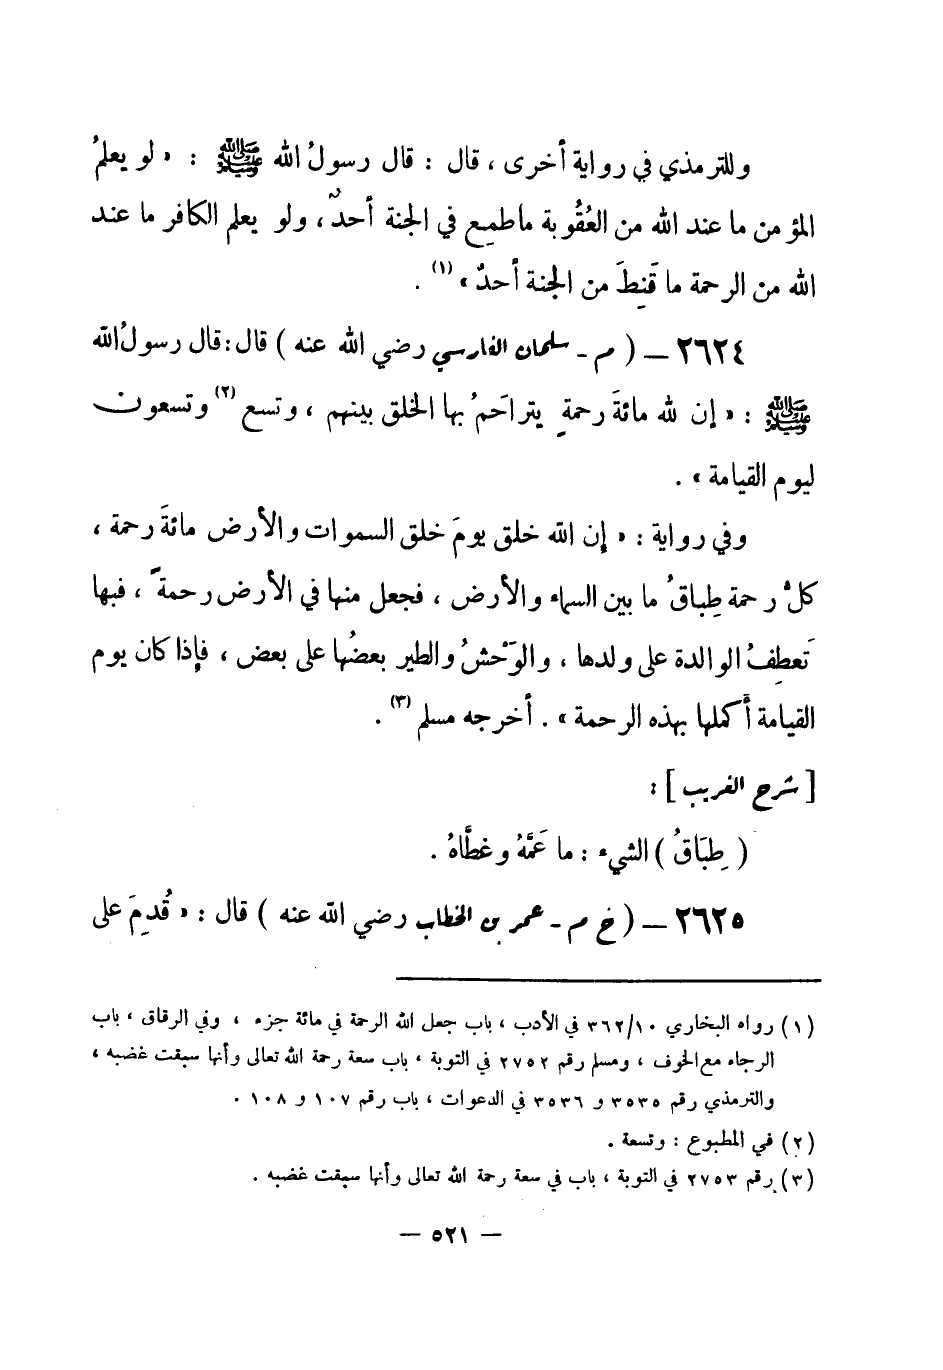 وللترمذي في رواية أخرى ، قال : قال رسولُ الله ﷺ : « لو يعلمُ
المؤمن ما عند الله من العُقُوبة ماطمِع في الجنة أحدٌ ، ولو يعلم الكافر ما عند
الله من الرحمة ما قَنِطَ من الجنة أحدٌ » (١) .
٢٦٢٤ – ( م - سلمان الفارسي رضي الله عنه ) قال : قال رسولُ الله
ﷺ : « إن لله مائةَ رحمةٍ يتراحَمُ بها الخلق بينهم ، وتسع (٢) وتسعون
ليوم القيامة » .
وفي رواية : « إن الله خلق يومَ خلق السموات والأرض مائةَ رحمة ،
كلُّ رحمة طِباقُ ما بين السماء والأرض ، فجعل منها في الأرض رحمةً ، فبها
تَعطِفُ الوالدة على ولدها ، والوَحْشُ والطير بعضُها على بعض ، فإذا كان يوم
القيامة أكملها بهذه الرحمة » . أخرجه مسلم (٣) .
[ شرح الغريب ] :
( طِبَاقُ ) الشيء : ما عَمَّهُ وغطَّاهُ .
٢٦٢٥ – ( خ م - عمر بن الخطاب رضي الله عنه ) قال : « قُدِمَ على
(١) رواه البخاري ٣٦٢/١٠ في الأدب ، باب جعل الله الرحمة في مائة جزء ، وفي الرقاق ، باب
الرجاء مع الخوف ، ومسلم رقم ٢٧٥٢ في التوبة ، باب سعة رحمة الله تعالى وأنها سبقت غضبه ،
والترمذي رقم ٣٥٣٥ و ٣٥٣٦ في الدعوات ، باب رقم ١٠٧ و ١٠٨ .
(٢) في المطبوع : وتسعة .
(٣) رقم ٢٧٥٣ في التوبة ، باب في سعة رحمة الله تعالى وأنها سبقت غضبه .
– ٥٢١ –